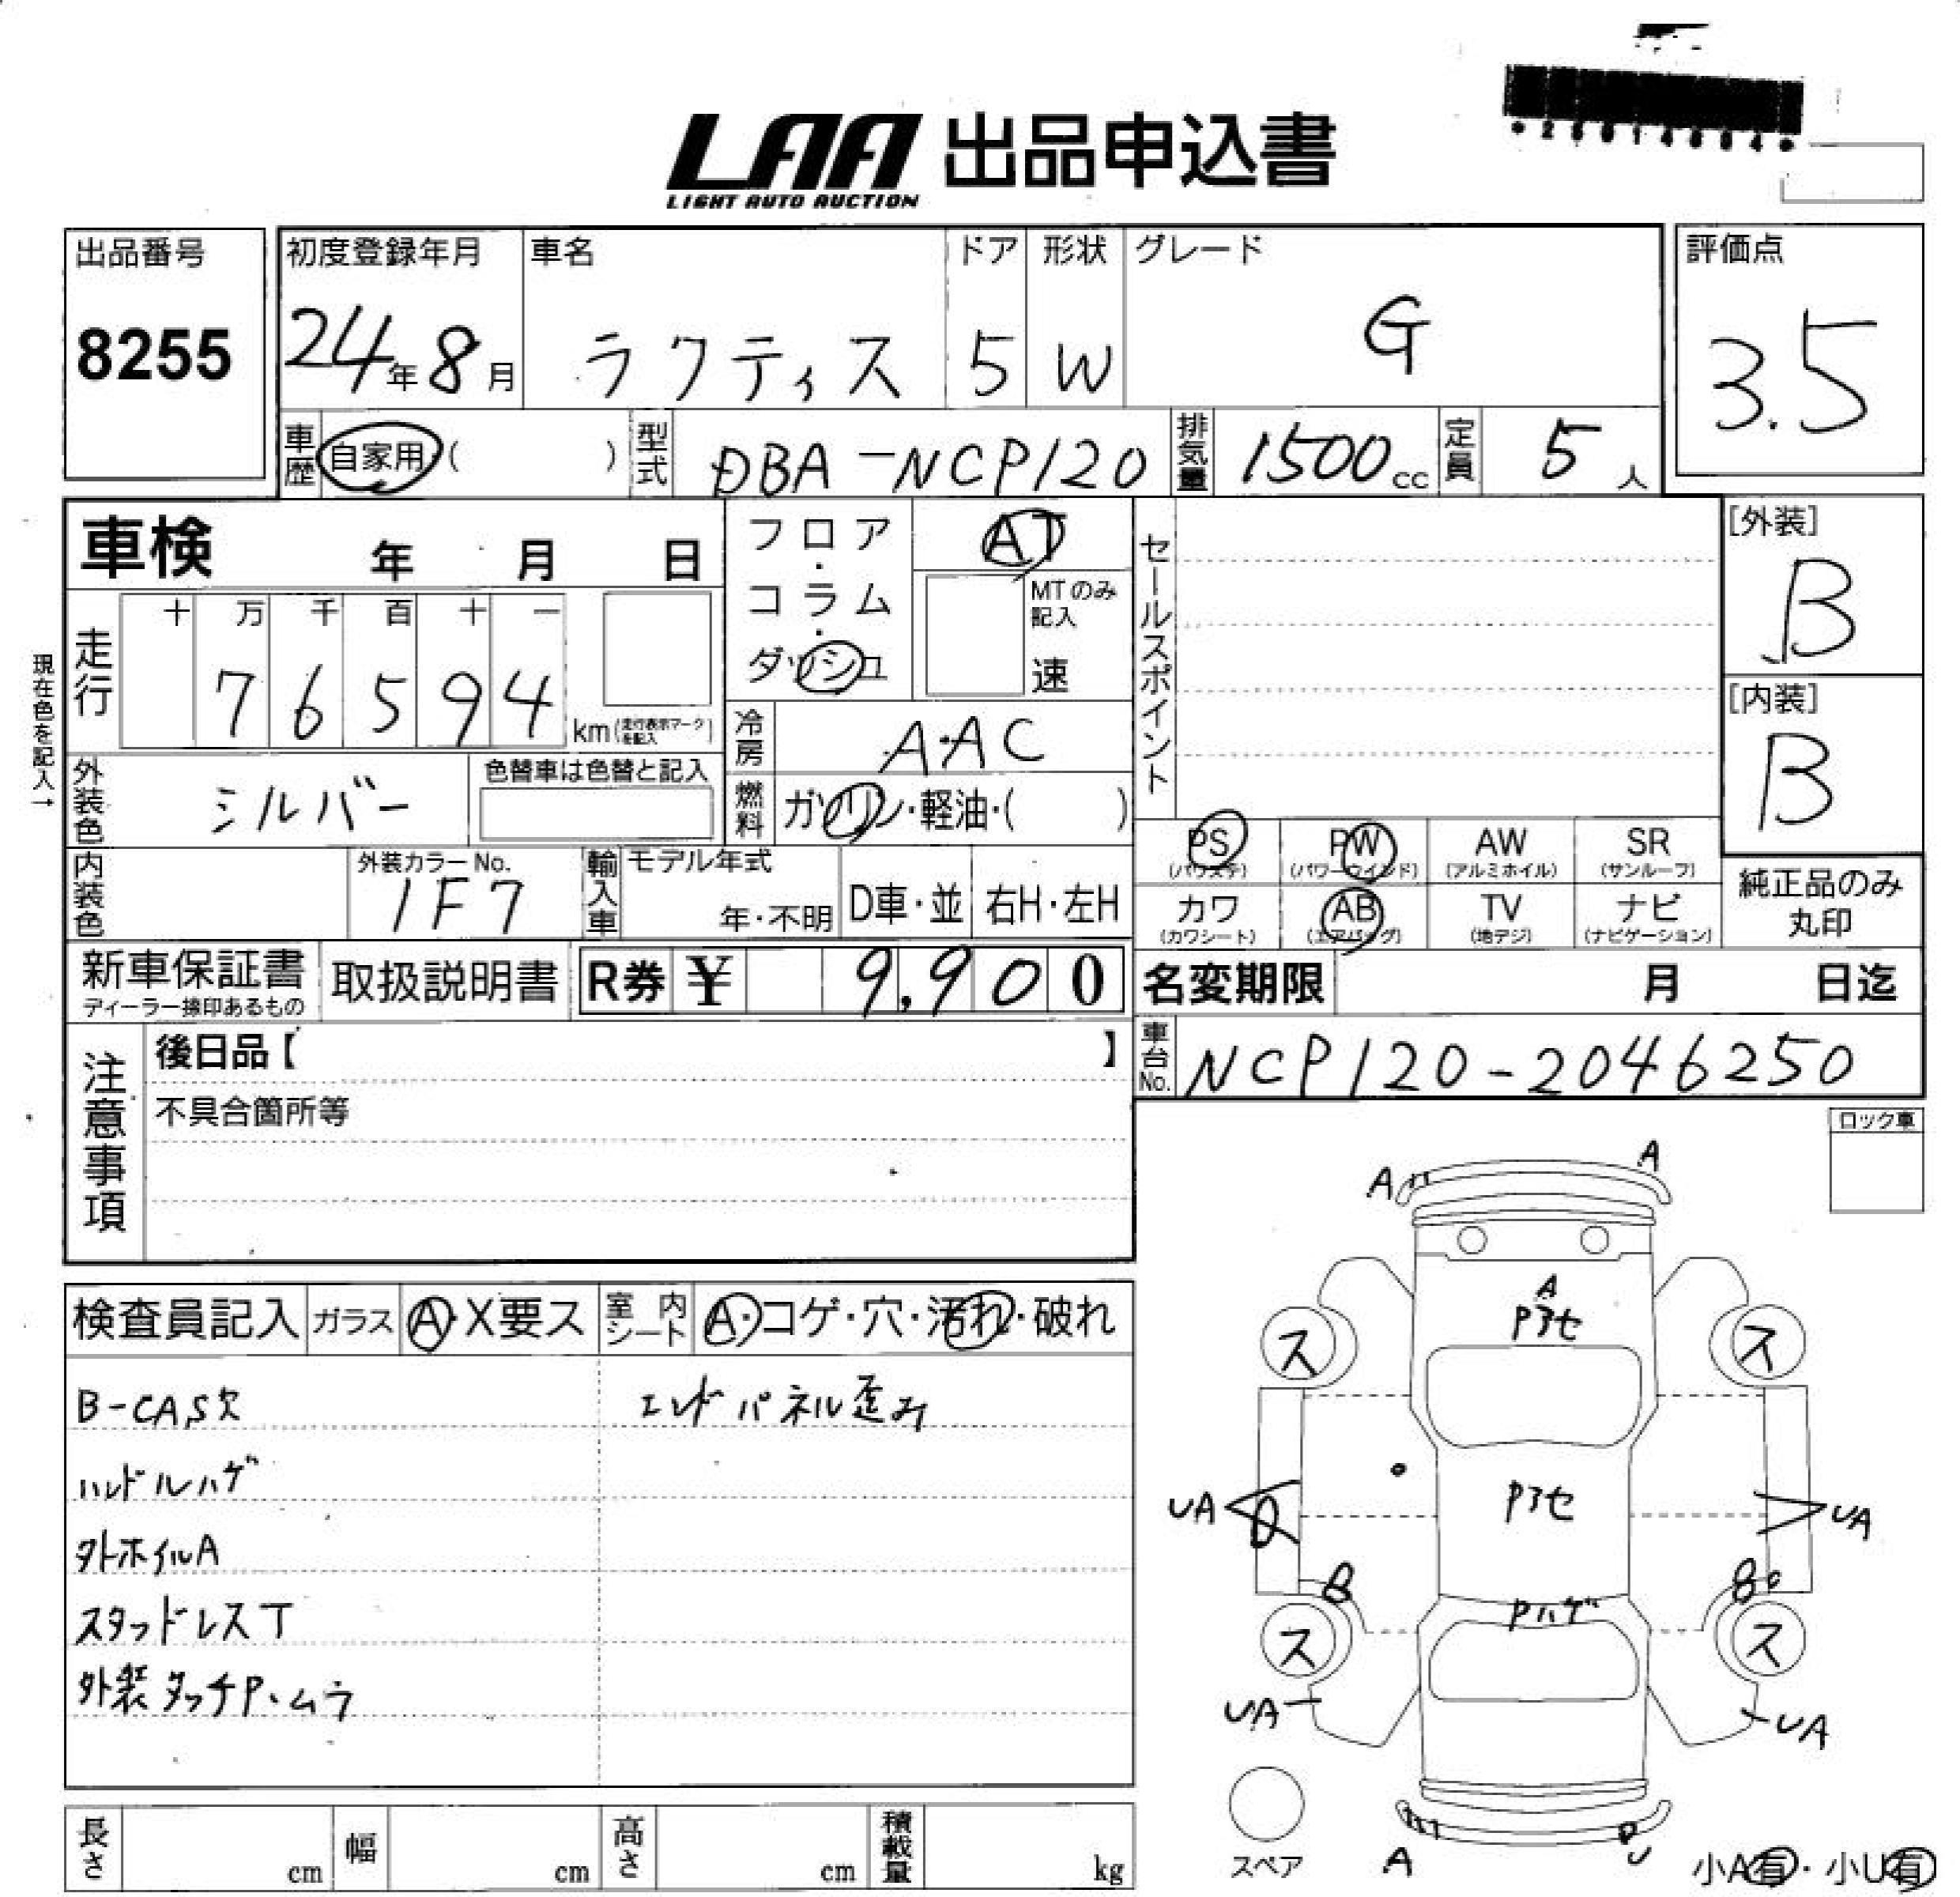 LAA 出品申込書
LIGHT AUTO AUCTION
出品番号
8255
初度登録年月 車名 ドア 形状 グレード
24年8月 ラクティス 5 W G
評価点
3.5
車歴 自家用・( ) 型式 DBA-NCP120 排気量 1500cc 定員 5人
車検 年 月 日
フロア・コラム・ダッシュ
AT
MTのみ記入
速
セールスポイント
[外装]
B
[内装]
B
現在色を記入→
走行
十 万 千 百 十 一
7 6 5 9 4 km(走行表示マークを記入)
冷房 A・AC
外装色 シルバー 色替車は色替と記入
燃料 ガソリン・軽油・( )
PS PW AW SR
(パワステ) (パワーウインド) (アルミホイル) (サンルーフ)
カワ AB TV ナビ
(カワシート) (エアバッグ) (地デジ) (ナビゲーション)
純正品のみ
丸印
内装色 外装カラーNo.
1F7
輸入車 モデル年式
年・不明 D車・並 右H・左H
新車保証書
ディーラー捺印あるもの
取扱説明書 R券 ¥ 9,900
名変期限 月 日迄
車台No. NCP120-2046250
注意事項
後日品【 】
不具合箇所等
ロック車
検査員記入 ガラス A・X要ス 室内シート A・コゲ・穴・汚れ・破れ
B-CAS欠 エンドパネル歪み
ハンドルハゲ
外ホイルA
スタッドレスT
外装タッチP・ムラ
A A
A
Pアセ
ス ス
UA Pアセ UA
B B
Pハゲ
ス ス
UA UA
スペア A
小A有・小U有
長さ cm 幅 cm 高さ cm 積載量 kg